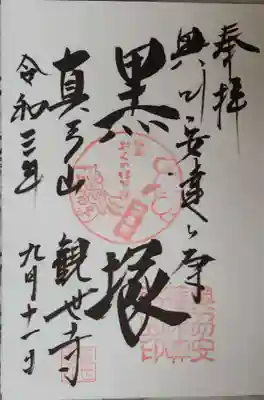 奉拝
奥州安達ヶ原
黒塚
真弓山
観世寺
令和三年
九月十一日